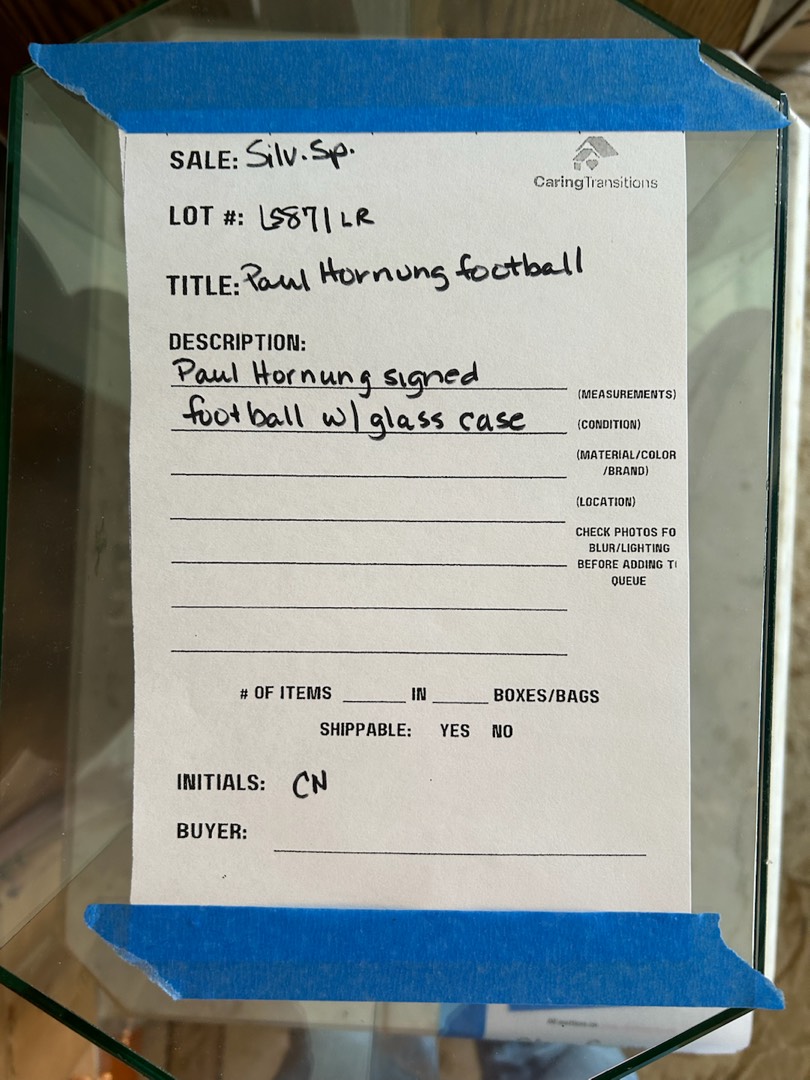 SALE: Silv. Sp.
CaringTransitions
LOT #: LS871 LR
TITLE: Paul Hornung football
DESCRIPTION:
Paul Hornung signed
(MEASUREMENTS)
football w/ glass case
(CONDITION)
(MATERIAL/COLOR
/BRAND)
(LOCATION)
CHECK PHOTOS FO
BLUR/LIGHTING
BEFORE ADDING T
QUEUE
# OF ITEMS ______ IN ______ BOXES/BAGS
SHIPPABLE: YES NO
INITIALS: CN
BUYER: